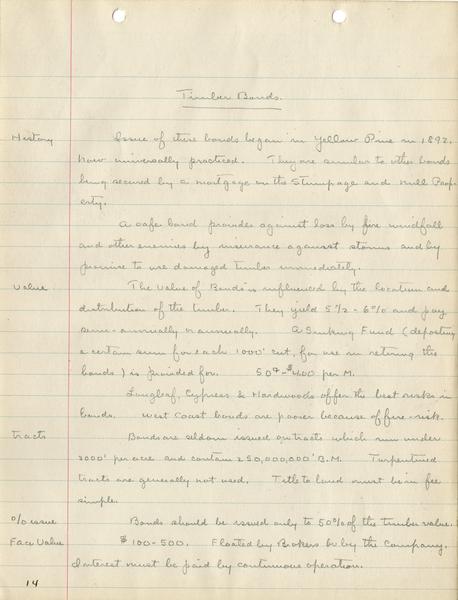 Timber Bonds.
History Issue of these bonds began in Yellow Pine in 1892.
Now universally practiced. They are similar to other bonds
being secured by a mortgage on the Stumpage and mill Prop-
erty.
A safe bond provides against loss by fire windfall
and other enemies by insurance against storms and by
promise to use damaged timber immediately.
Value The Value of Bonds is influenced by the location and
distribution of the timber. They yield 5 1/2 - 6% and pay
semi-annually or annually. A Sinking Fund (depositing
a certain sum for each 1000' cut, for use in retiring the
bonds) is provided for. 50¢-$4.00 per M.
Longleaf, Cypress & Hardwoods offer the best risks in
bonds. West Coast bonds are poorer because of fire-risk.
tracts Bonds are seldom issued on tracts which run under
3000' per acre and contain 250,000,000' B.M. Turpentined
tracts are generally not used. Title to land must be in fee
simple.
% issue Bonds should be issued only to 50% of the timber value.
Face Value $100-500. Floated by Brokers or by the Company.
Interest must be paid by continuous operation.
14